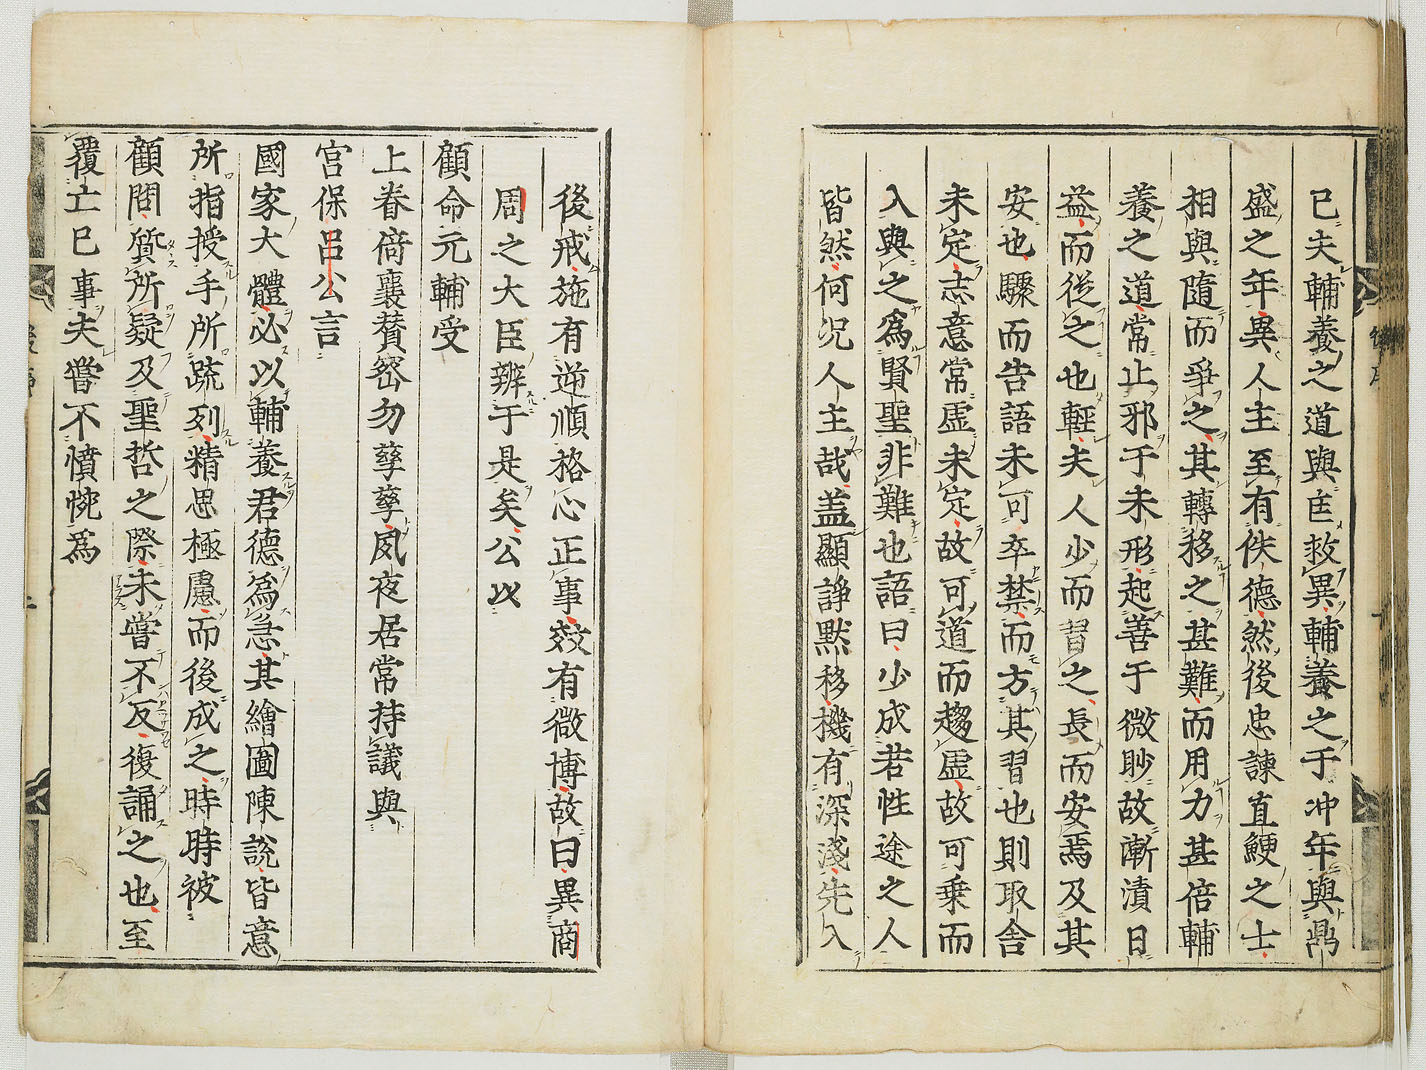 已夫輔養之道與匡救異輔養之于冲年與鼎
盛之年異人主至有佚德然後忠諫直鯁之士
相與隨而爭之其轉移之甚難而用力甚倍輔
養之道常止邪于未形起善于微眇故漸漬日
益而從之也輕夫人少而習之長而安焉及其
安也驟而告語未可卒禁而方其習也則取舍
未定志意常虛未定故可道而趨虛故可乗而
入與之爲賢聖非難也語曰少成若性途之人
皆然何况人主哉盖顯諍默移機有深淺先入
後戒施有逆順格心正事效有微博故曰異商
周之大臣辨于是矣公以
顧命元輔受
上眷倚襄賛宻勿孳孳夙夜居常持議與
宫保吕公言
國家大體必以輔養君德爲急其繪圖陳說皆意
所指授手所䟽列精思極慮而後成之時時被
顧問質所疑及聖哲之際未嘗不反復誦之也至
覆亡已事夫嘗不憤惋爲